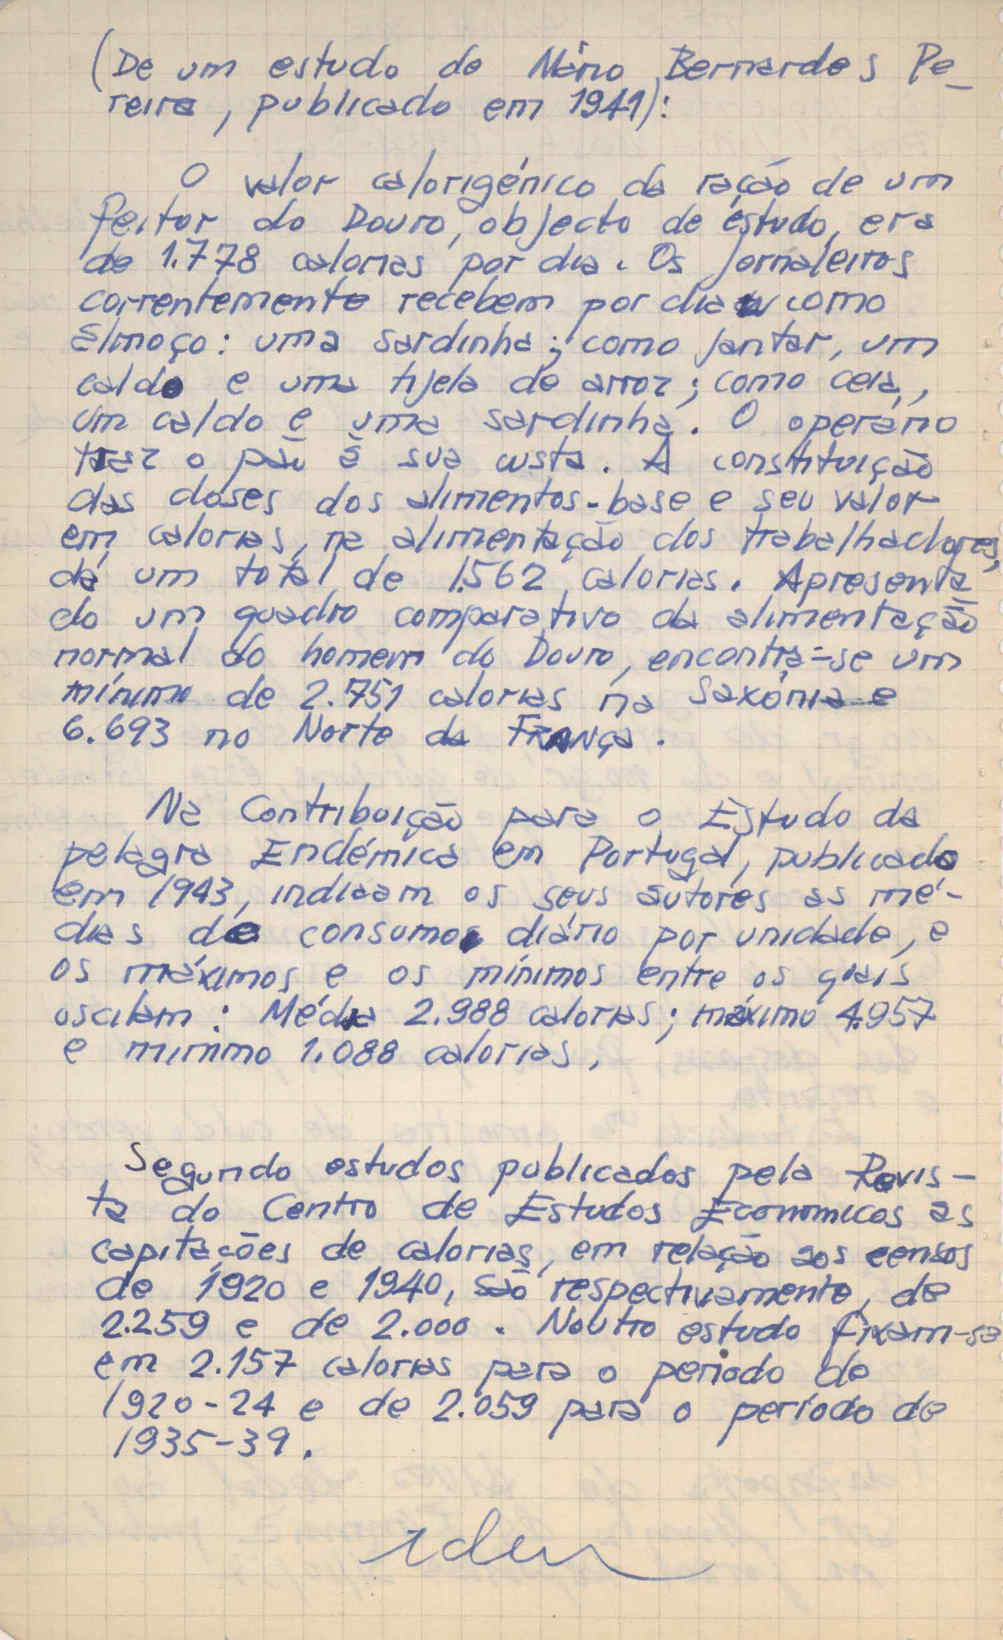 (De um estudo de Mário Bernardes Pe-
reira, publicado em 1941):
O valor calorigénico da ração de um
feitor do Douro, objecto de estudo, era
de 1.778 calorias por dia. Os jornaleiros
correntemente recebem por dia como
almoço: uma sardinha; como jantar, um
caldo e uma tijela de arroz; como ceia,
um caldo e uma sardinha. O operário
traz o pão à sua custa. A constituição
das doses dos alimentos-base e seu valor
em calorias, na alimentação dos trabalhadores,
dá um total de 1.562 calorias. Apresenta
do um quadro comparativo da alimentação
normal do homem do Douro, encontra-se um
mínimo de 2.751 calorias na Saxónia e
6.693 no Norte da França.
Na Contribuição para o Estudo da
pelagra Endémica em Portugal, publicado
em 1943, indicam os seus autores as mé-
dias de consumos diário por unidade, e
os máximos e os mínimos entre os quais
oscilam: Média 2.988 calorias; máximo 4.957
e mínimo 1.088 calorias,
Segundo estudos publicados pela Revis-
ta do Centro de Estudos Economicos as
capitações de calorias, em relação aos censos
de 1920 e 1940, são respectivamente, de
2.259 e de 2.000. Noutro estudo fixam-se
em 2.157 calorias para o periodo de
1920-24 e de 2.059 para o período de
1935-39.
idem